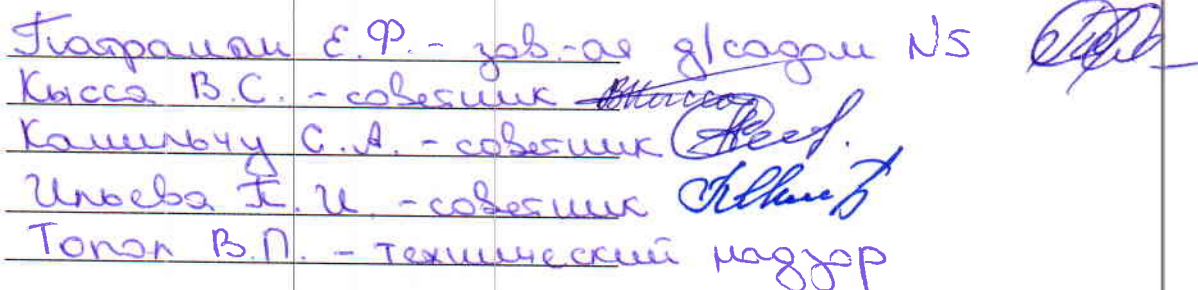 Патраман Е.Ф. - зав-ая д/садом №5
Кысса В.С. - советник
Камильчу С.А. - советник
Ильева П. И. - советник
Топал В.П. - технический надзор